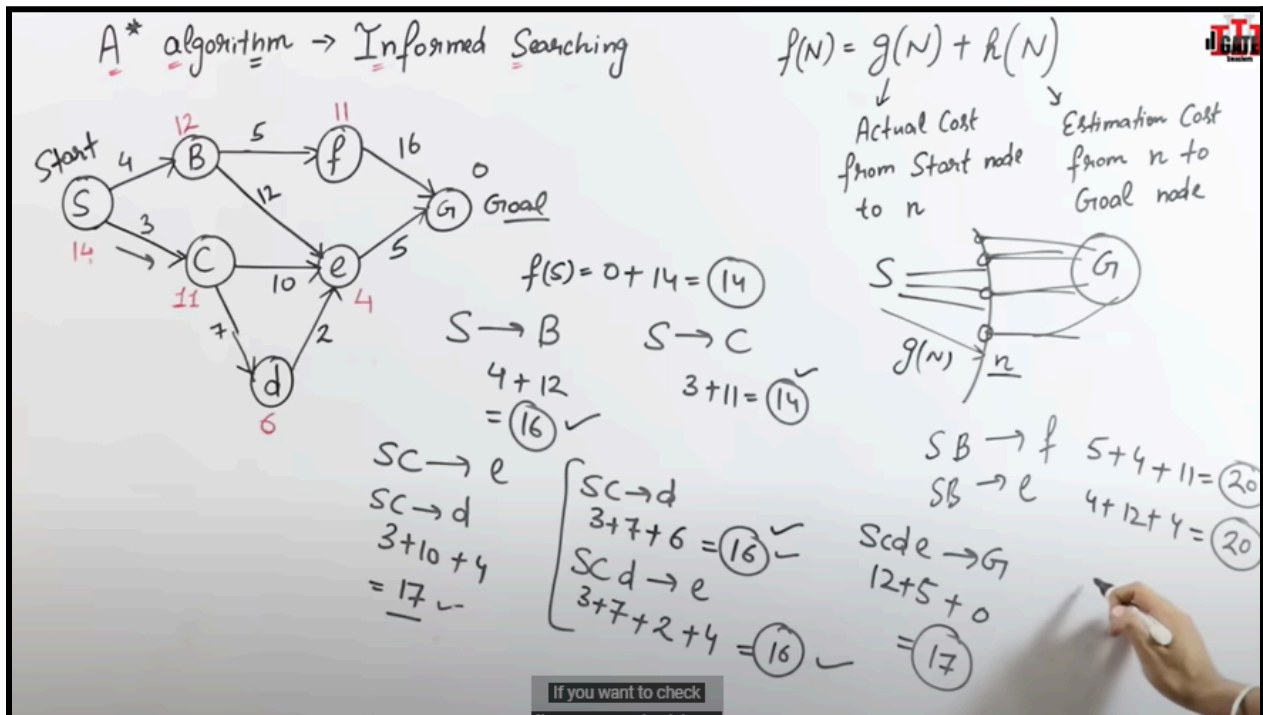 A* algorithm → Informed Searching
f(N) = g(N) + h(N)
GATE
Smashers
Actual Cost
from Start node
to n
Estimation Cost
from n to
Goal node
Start
12
11
4
B
5
f
16
0
S
12
G
Goal
14
3
C
10
e
5
11
4
7
2
d
6
f(S) = 0 + 14 = 14
S
G
g(N)
n
S → B
4 + 12
= 16 ✓
S → C
3 + 11 = 14 ✓
SC → e
SC → d
3 + 10 + 4
= 17 ✓
SC → d
3 + 7 + 6 = 16 ✓ ✓
SCd → e
3 + 7 + 2 + 4 = 16 ✓
SB → f 5 + 4 + 11 = 20
SB → e 4 + 12 + 4 = 20
Scde → G
12 + 5 + 0
= 17
If you want to check